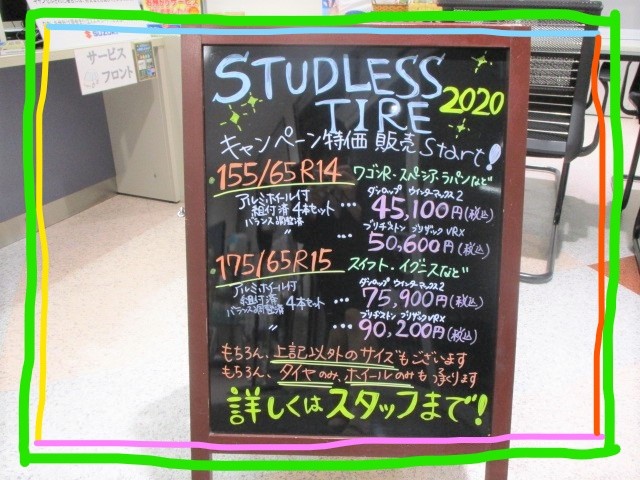 サービス
フロント
STUDLESS
TIRE 2020
キャンペーン特価 販売 Start!
・155/65R14 ワゴンR・スペーシア・ラパンなど
アルミホイール付
組付済 4本セット
バランス調整済
ダンロップ ウインターマックス2
… 45,100円(税込)
〃 ブリヂストン ブリザックVRX
… 50,600円(税込)
・175/65R15 スイフト・イグニスなど
アルミホイール付
組付済 4本セット
バランス調整済
ダンロップ ウインターマックス2
… 75,900円(税込)
〃 ブリヂストン ブリザックVRX
… 90,200円(税込)
もちろん、上記以外のサイズもございます
もちろん、タイヤのみ、ホイールのみも承ります
詳しくはスタッフまで!